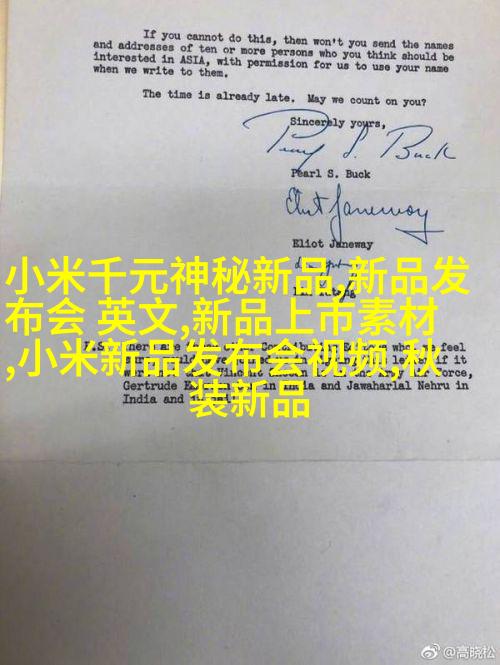 If you cannot do this, then won't you send the names
and addresses of ten or more persons who you think should be
interested in ASIA, with permission for us to use your name
when we write to them.
The time is already late. May we count on you?
Sincerely yours,
Pearl S. Buck
Pearl S. Buck
Eliot Janeway
Eliot Janeway
小米千元神秘新品,新品发
布会 英文,新品上市素材
,小米新品发布会视频,秋
装新品
Gertrude in India and Jawaharlal Nehru in
India and
@高晓松